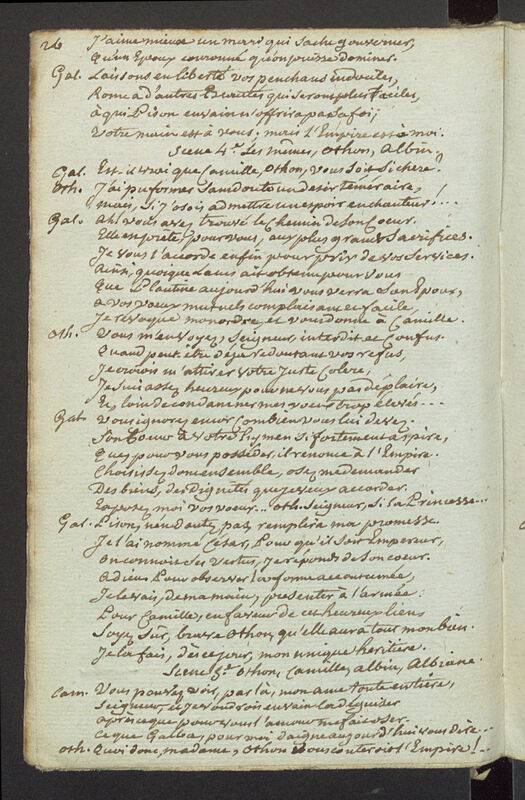 26 J'aime mieux un mari qui sache gouverner,
Qu'un Epoux couronné qu'on puisse dominer.
Gal. Laissons en liberté vos penchans indociles,
Rome a d'autres Beautés qui seront plus faciles,
à qui Pison en vain n'offrira pas sa foi;
Votre main est à vous; mais l'Empire est à moi.
Scene 4.e Les mêmes, Othon, Albin.
Gal. Est-il vrai que Camille, Othon, vous soit si chere?
Oth. J'ai pu former sans doute un desir téméraire,
mais, si j'osois admettre un espoir enchanteur...!
Gal. Ah! vous avez trouvé le Chemin de son Coeur.
Elle est prête, pour vous, aux plus grands Sacrifices.
Je vous l'accorde enfin pour prix de vos services.
Ainsi, quoique Lacus ait obtenu pour vous
Que Plautine aujourd'hui vous verra son Epoux,
à vos voeux mutuels complaisant et facile,
Je révoque mon ordre, et vous donne à Camille.
Oth. Vous m'en voyez, Seigneur, interdit et Confus.
Quand peut-être déja redoutant vos refus,
Je croiois m'attirer votre Juste Colere,
Je suis assez heureux pour ne vous pas déplaire,
Et, loin de condamner mes voeux trop élevés...
Gal. Vous ignorez encor Combien vous lui devez.
Son Coeur à votre hymen si fortement aspire,
Que, pour vous posséder, il renonce à l'Empire.
Choisissez donc ensemble, osez me demander
Des biens, des Dignités que je veux accorder.
Exposez moi vos voeux... Oth. Seigneur, Si la Princesse...
Gal. Pison, n'en doutez pas, remplira ma promesse.
Je l'ai nommé César, Pour qu'il soit Empereur,
On connoit ses Vertus, Je réponds de son coeur.
Adieu. Pour observer la forme accoutumée,
Je le vais, de ma main, présenter à l'armée:
Pour Camille, en faveur de cet heureux liens
Soyez Sûr, brave Othon, qu'elle aura tout mon bien.
Je la fais, dès ce jour, mon unique héritiere.
Scene 5.e Othon, Camille, albin, Albiane.
Cam. Vous pouvez voir, par là, mon ame toute entiére,
Seigneur, et Je voudrois en vain la déguiser
après ce que pour vous l'amour me fait oser.
Ce que Galba, pour moi daigne aujourd'hui vous dire...
Oth. Quoi donc, madame, Othon vous couteroit l'Empire!..